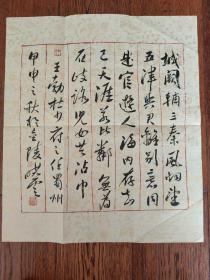 城闕輔三秦風烟望
五津與君離別意同
是宦遊人海内存知
己天涯若比鄰無為
在歧路兒女共沾巾
王勃杜少府之任蜀州
甲申之秋於金陵